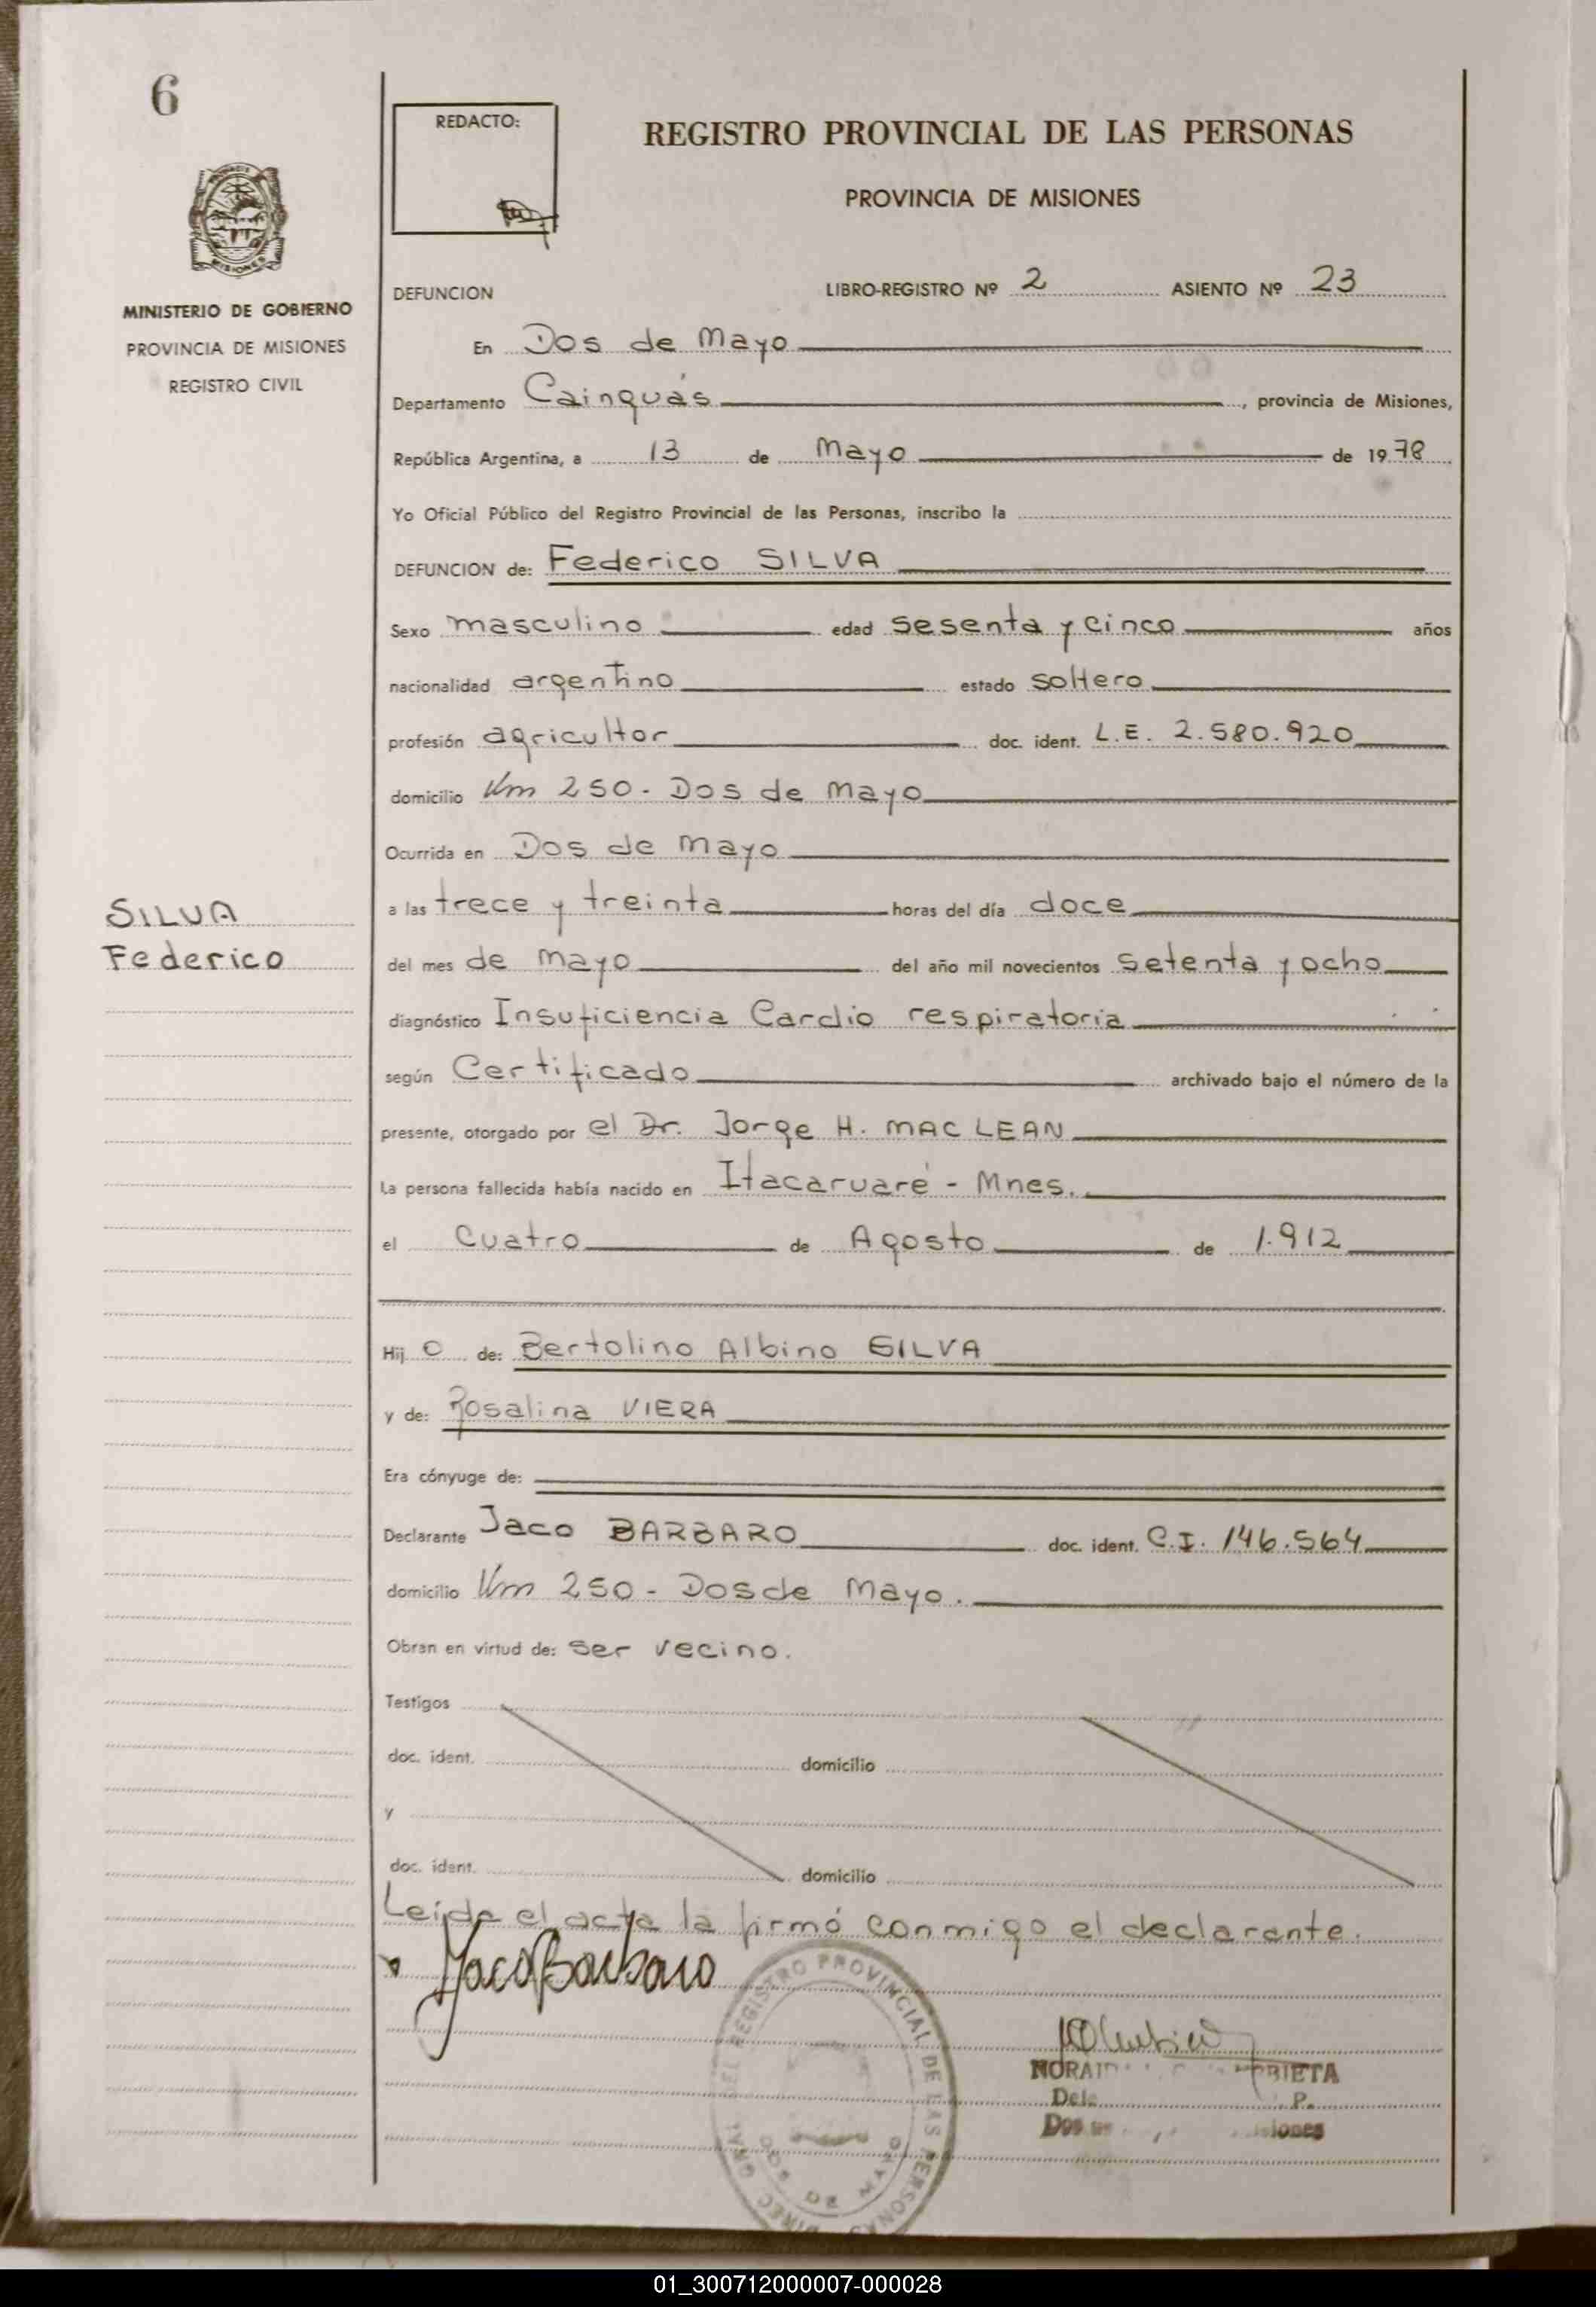 6
REDACTO:
REGISTRO PROVINCIAL DE LAS PERSONAS
PROVINCIA DE MISIONES
MISIONES
MINISTERIO DE GOBIERNO
PROVINCIA DE MISIONES
REGISTRO CIVIL
DEFUNCION LIBRO-REGISTRO Nº 2 ASIENTO Nº 23
En Dos de Mayo
Departamento Cainguás, provincia de Misiones,
República Argentina, a 13 de Mayo de 1978
Yo Oficial Público del Registro Provincial de las Personas, inscribo la
DEFUNCION de: Federico SILVA
Sexo masculino edad sesenta y cinco años
nacionalidad argentino estado soltero
profesión agricultor doc. ident. L.E. 2.580.920
domicilio Km 250 - Dos de Mayo
Ocurrida en Dos de Mayo
a las trece y treinta horas del día doce
SILVA
Federico
del mes de Mayo del año mil novecientos setenta y ocho
diagnóstico Insuficiencia Cardio respiratoria
según Certificado archivado bajo el número de la
presente, otorgado por el Dr. Jorge H. MAC LEAN
La persona fallecida había nacido en Itacaruaré - Mnes.
el Cuatro de Agosto de 1.912
Hijo de: Bertolino Albino SILVA
y de: Rosalina VIERA
Era cónyuge de:
Declarante Jaco BARBARO doc. ident. C.I. 146.564
domicilio Km 250 - Dos de Mayo.
Obran en virtud de: ser vecino.
Testigos
doc. ident. domicilio
y
doc. ident. domicilio
Leida el acta la firmó conmigo el declarante.
Jaco Barbaro
REGISTRO PROVINCIAL DE LAS PERSONAS
DOS DE MAYO
01_300712000007-000028